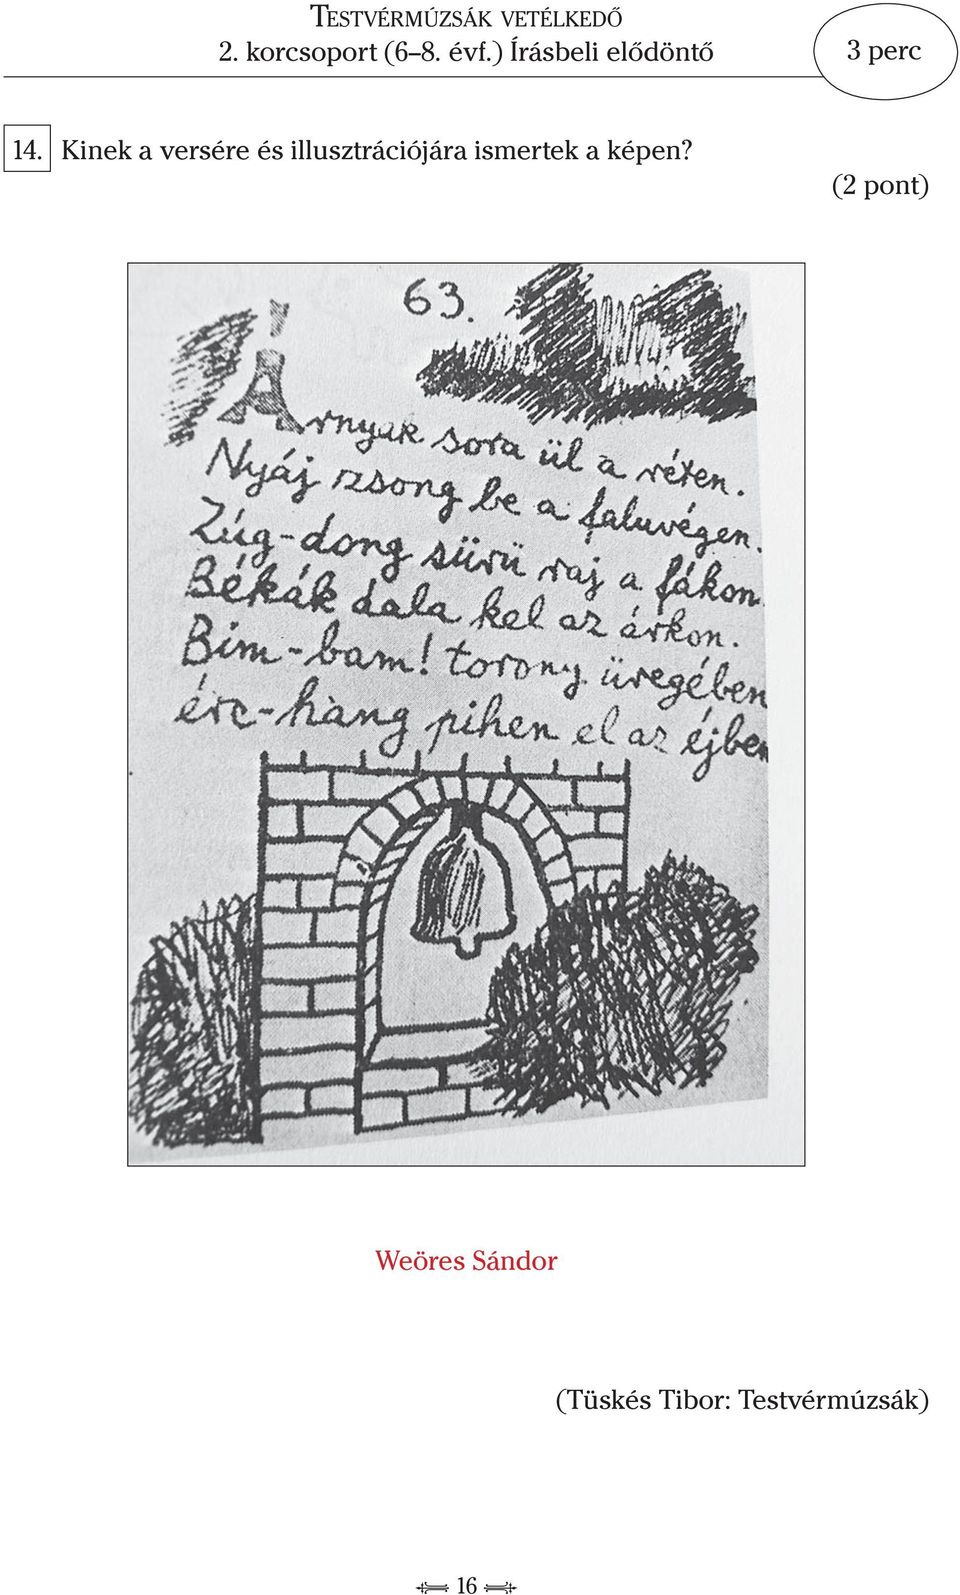 TESTVÉRMÚZSÁK VETÉLKEDŐ
2. korcsoport (6–8. évf.) Írásbeli elődöntő
3 perc
14. Kinek a versére és illusztrációjára ismertek a képen?
(2 pont)
63.
Árnyak sora ül a réten.
Nyáj zsong be a faluvégen.
Zúg-dong sürü raj a fákon.
Békák dala kel az árkon.
Bim-bam! torony üregében
érc-hang pihen el az éjben
Weöres Sándor
(Tüskés Tibor: Testvérmúzsák)
16